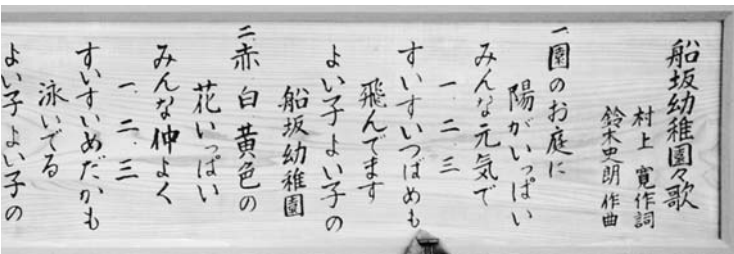 船坂幼稚園々歌
村上 寛作詞
鈴木史朗作曲
一、園のお庭に
陽がいっぱい
みんな元気で
一、二、三
すいすいつばめも
飛んでます
よい子 よい子の
船坂幼稚園
二、赤、白、黄色の
花いっぱい
みんな仲よく
一、二、三
すいすいめだかも
泳いでる
よい子 よい子の